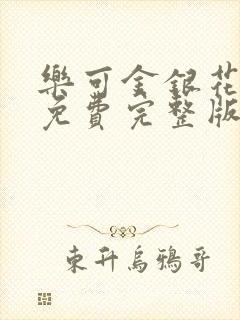 樂可金銀花
免費完整版
東升烏鴉哥